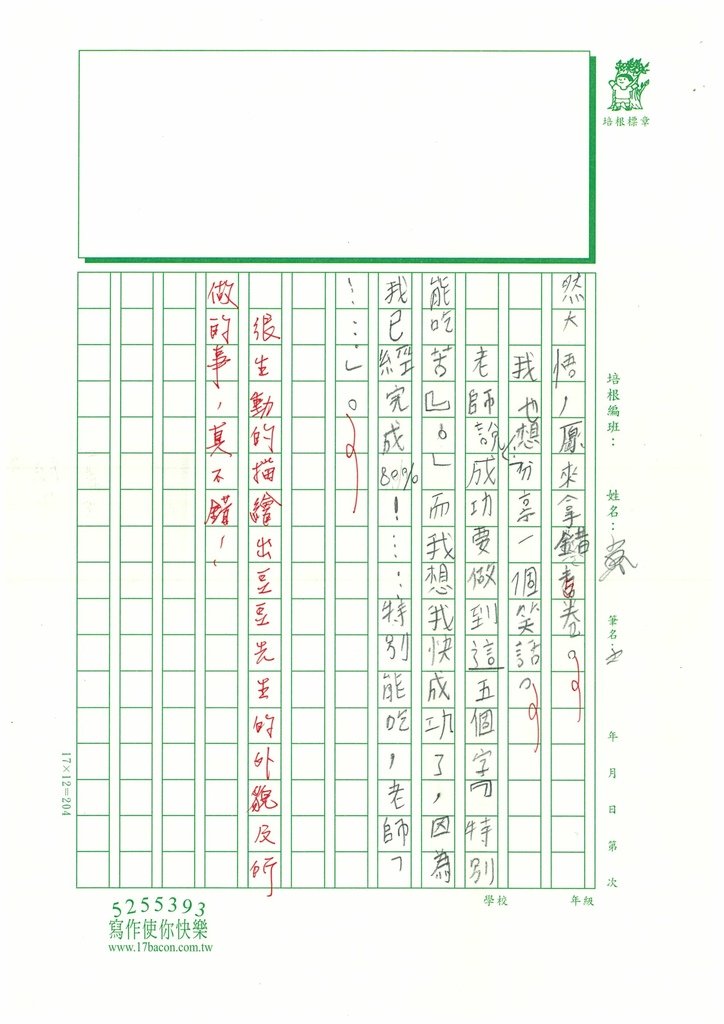 培根標章
培根編班：
姓名：
筆名：
年 月 日 第 次
學校
年級
然大悟，原來拿錯書卷。
我也想分享一個笑話。
老師說成功要做到這五個字『特別
能吃苦』。」而我想我快成功了，因為
我已經完成80%！……特別能吃，老師「
……」。
很生動的描繪出豆豆先生的外貌及所
做的事，真不錯！
17×12=204
5255393
寫作使你快樂
www.17bacon.com.tw